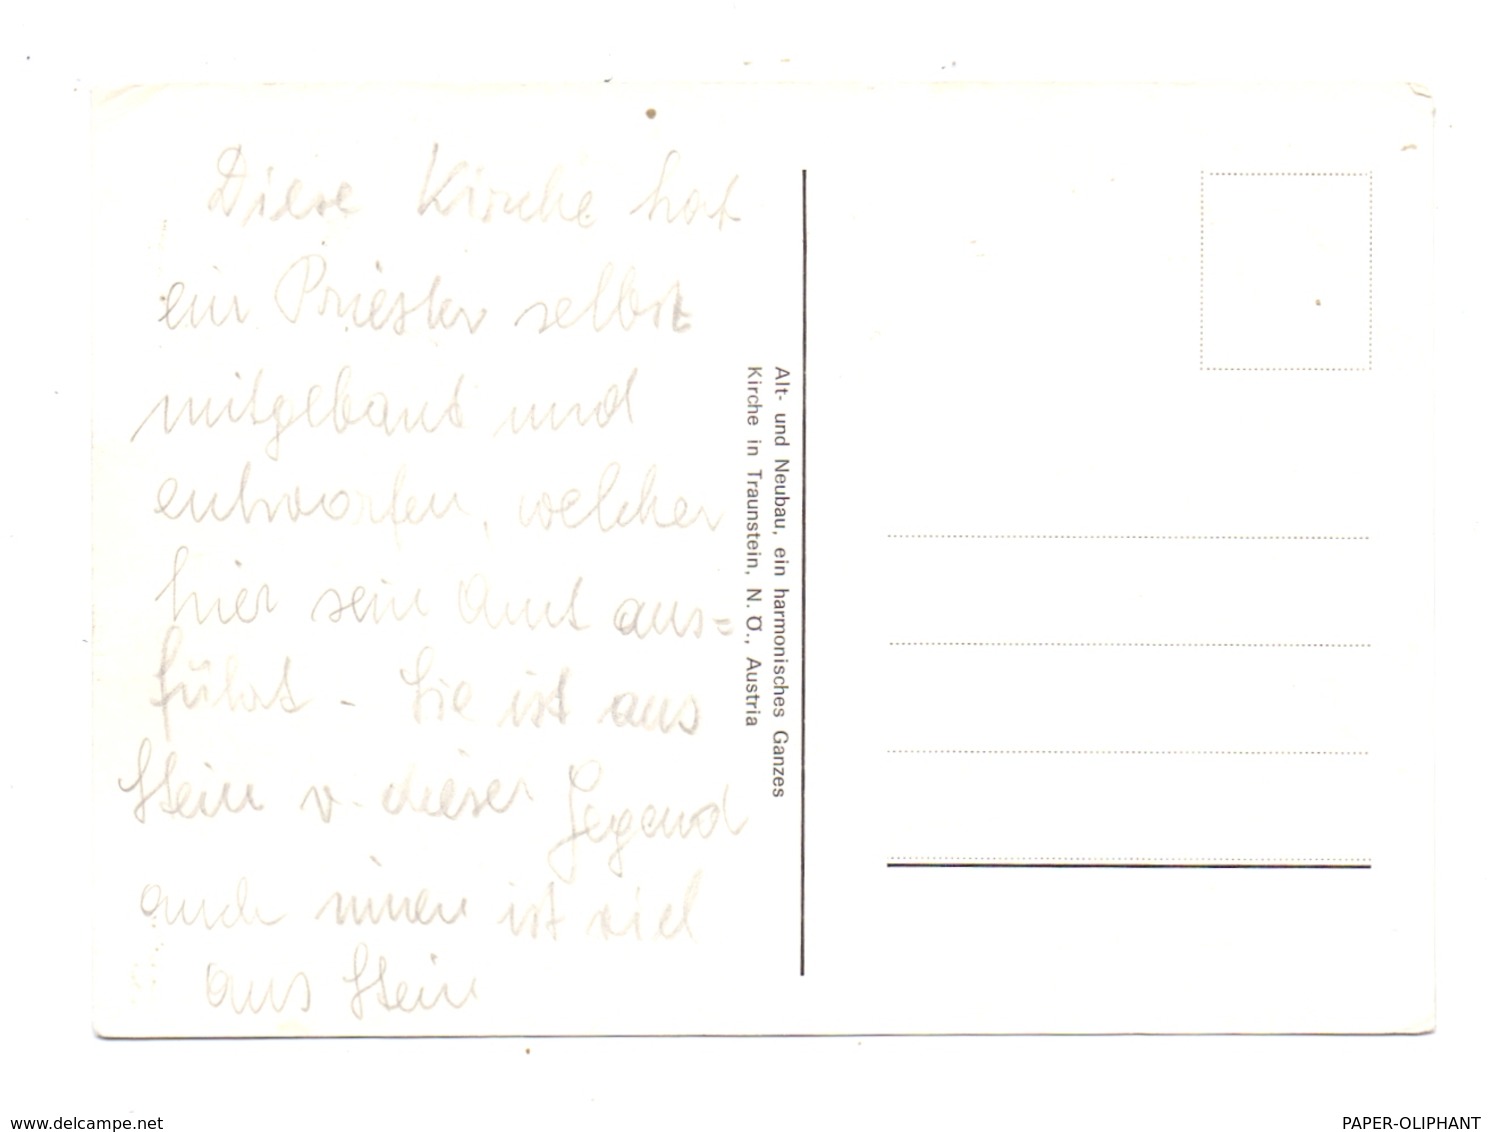 Diese Kirche hat
ein Priester selbst
mitgebaut und
entworfen, welcher
hier sein Amt aus=
führt - Sie ist aus
Stein v. dieser Gegend
auch innen ist viel
aus Stein
Alt- und Neubau, ein harmonisches Ganzes
Kirche in Traunstein, N. Ö., Austria
delcampe.net
PAPER-OLIPHANT